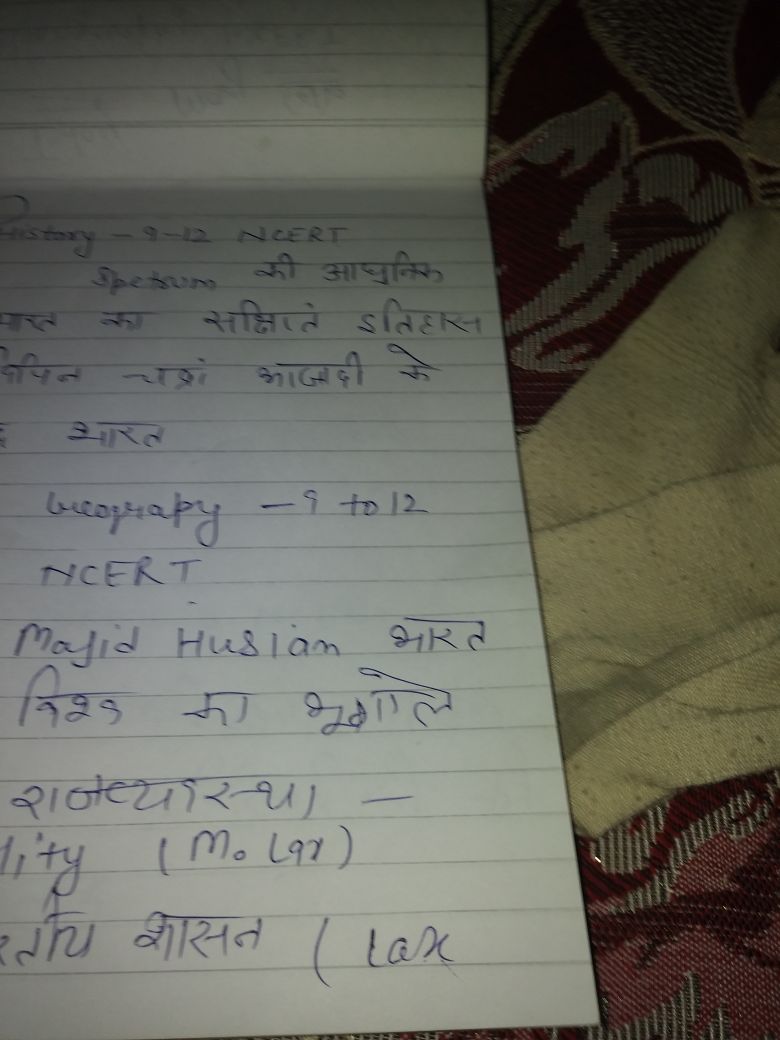 History - 9-12 NCERT
Spetrum की आधुनिक
भारत का सक्षितं इतिहास
विपिन चन्रां आजादी के
भारत
Geograpy - 9 to 12
NCERT
Majid Husian भारत
विश्व का भूगोल
राजव्यवस्था -
lity (M. Lax)
रतीय शासन ( Lax